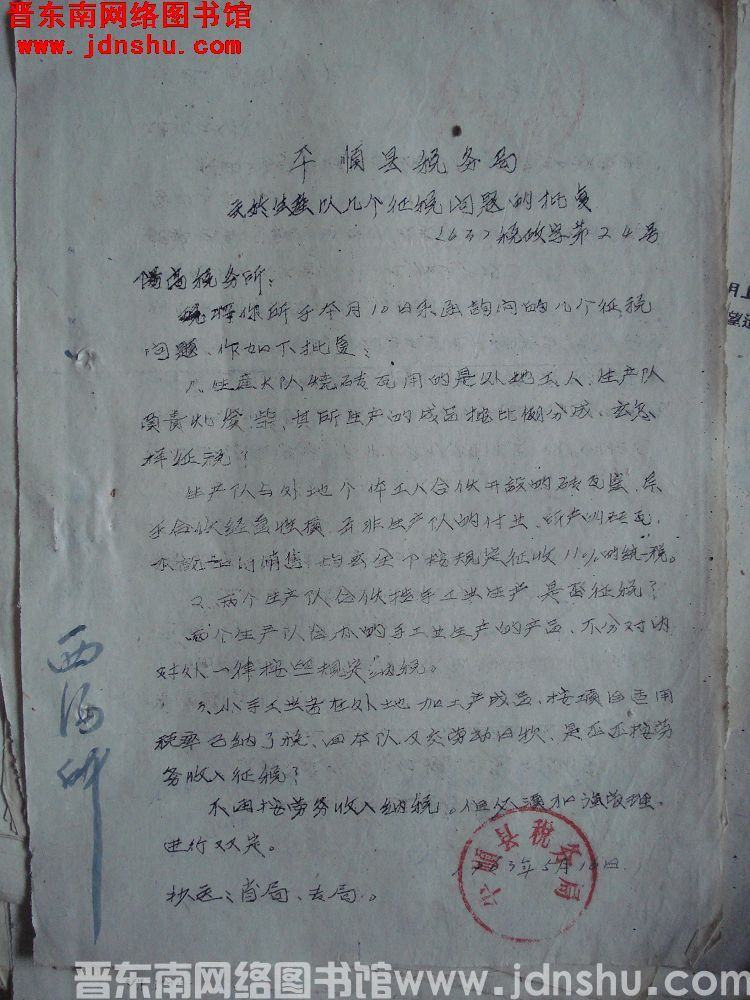 晋东南网络图书馆
www.jdnshu.com
平顺县税务局
关於生产队几个征税问题的批复
(63)税政字第24号
阳高税务所:
你所于本月10日来函询问的几个征税
问题、作如下批复:
1、生产大队烧砖瓦用的是外地工人、生产队
负责炭柴、其所生产的成品按比例分成、怎
样征税?
生产队与外地个体工人合伙开设的砖瓦窑、系
于合伙经营性质、并非生产队的付业、所产砖瓦、
销售、均应按规定征收11%的统一税。
2、两个生产队合伙搞手工业生产、是否征税?
两个生产队合办的手工业生产的产品、不分对内
对外一律按照规定纳税。
3、小手工业者在外地加工产成品、按项目适用
税率已纳了税、回本队又交劳动日款、是否还按劳
务收入征税?
不再按劳务收入纳税。但必须加强管理、
进行双定。
63年5月1日
抄送:省局、专局。
平顺县税务局
西沟研
月上
望远
晋东南网络图书馆 www.jdnshu.com